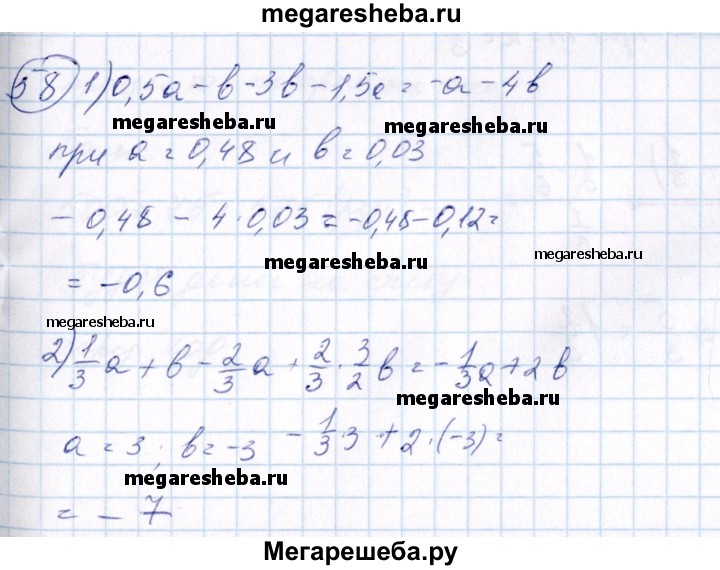 megaresheba.ru
58 1) 0,5a - b - 3b - 1,5a = -a - 4b
megaresheba.ru megaresheba.ru
при a = 0,48 и b = 0,03
- 0,48 - 4·0,03 = -0,48 - 0,12 =
megaresheba.ru megaresheba.ru
= -0,6
megaresheba.ru
2) 1/3 a + b - 2/3 a + 2/3 · 3/2 b = - 1/3 a + 2b
megaresheba.ru
a = 3; b = -3 - 1/3 · 3 + 2·(-3) =
megaresheba.ru
= - 7
Мегарешеба.ру